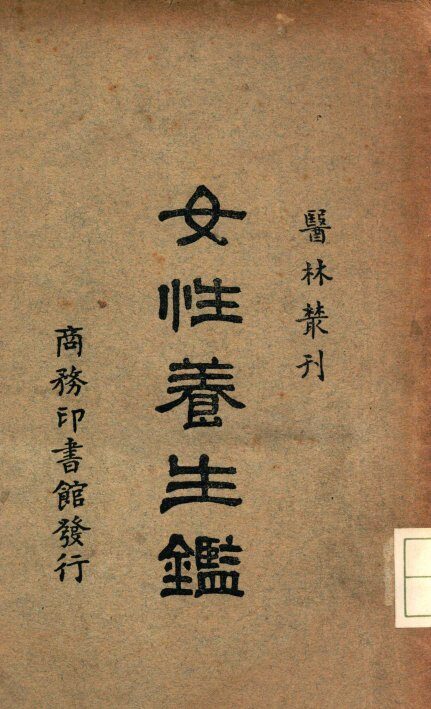 醫林叢刊
女性養生鑑
商務印書館發行